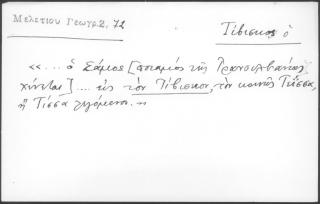 Μελετίου Γεωγρ. 2, 72
Τίβισκος ὁ
«... ὁ Σάμος [ποταμὸς τῆς Τρανσυλβανίας
χύνεται] .... εἰς τὸν Τίβισκον, τὸν κοινῶς Τίσσα,
ἢ Τίσσα λεγόμενον.»